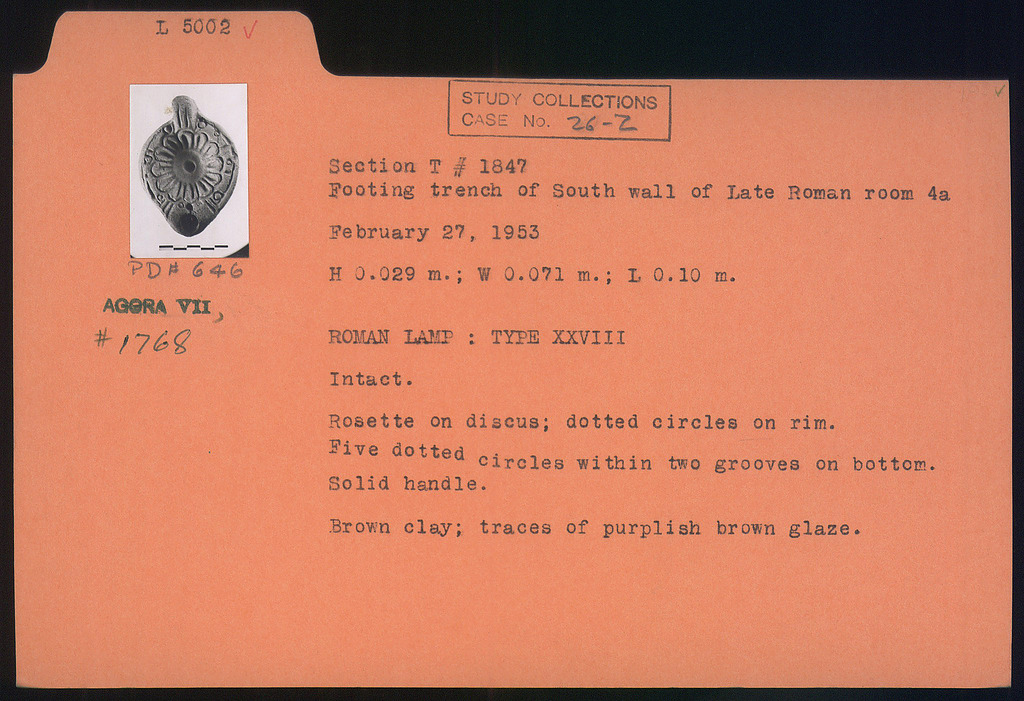 L 5002 ✓
STUDY COLLECTIONS
CASE No. 26-Z
Section T # 1847
Footing trench of South wall of Late Roman room 4a
February 27, 1953
H 0.029 m.; W 0.071 m.; L 0.10 m.
PD# 646
AGORA VII,
#1768
ROMAN LAMP : TYPE XXVIII
Intact.
Rosette on discus; dotted circles on rim.
Five dotted circles within two grooves on bottom.
Solid handle.
Brown clay; traces of purplish brown glaze.